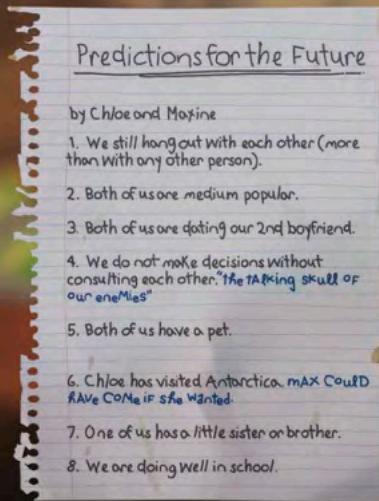 Predictions for the Future
by Chloe and Maxine
1. We still hang out with each other (more
than with any other person).
2. Both of us are medium popular.
3. Both of us are dating our 2nd boyfriend.
4. We do not make decisions without
consulting each other. "the tAlking skull OF
our eneMies"
5. Both of us have a pet.
6. Chloe has visited Antarctica. mAX CoulD
HAVe CoMe iF she wanted.
7. One of us has a little sister or brother.
8. We are doing well in school.